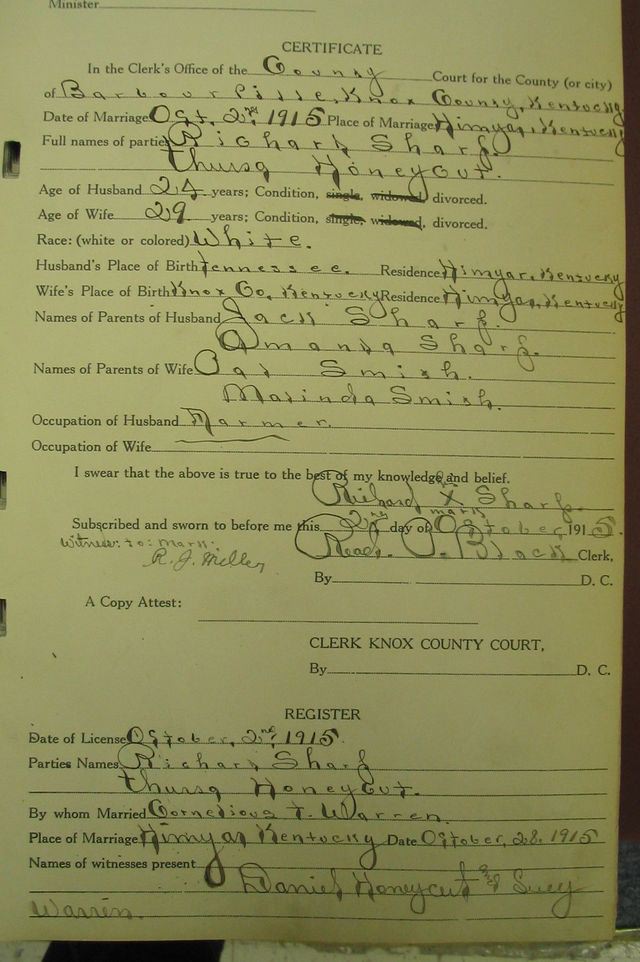 Minister
CERTIFICATE
In the Clerk's Office of the County Court for the County (or city)
of Barbourville, Knox County, Kentucky
Date of Marriage Oct. 2nd 1915 Place of Marriage Himyar, Kentucky
Full names of parties Richard Sharp.
Thursa Honeycut.
Age of Husband 24 years; Condition, single, widowed, divorced.
Age of Wife 29 years; Condition, single, widowed, divorced.
Race: (white or colored) White.
Husband's Place of Birth Tennessee. Residence Himyar, Kentucky
Wife's Place of Birth Knox Co, Kentucky Residence Himyar, Kentucky
Names of Parents of Husband Jack Sharp.
Amanda Sharp.
Names of Parents of Wife Smith.
Malinda Smith.
Occupation of Husband Farmer.
Occupation of Wife
I swear that the above is true to the best of my knowledge and belief.
Richard X Sharp.
mark
Subscribed and sworn to before me this 2nd day of October, 1915.
Witness: to: mark. Read. P. Black Clerk,
R. J. Miller
By D. C.
A Copy Attest:
CLERK KNOX COUNTY COURT,
By D. C.
REGISTER
Date of License October, 2nd, 1915.
Parties Names Richard Sharp
Thursa Honeycut.
By whom Married Cornelious T. Warren.
Place of Marriage Himyar Kentucky Date October, 28. 1915
Names of witnesses present
Daniel Honeycut and Lucy
Warren.